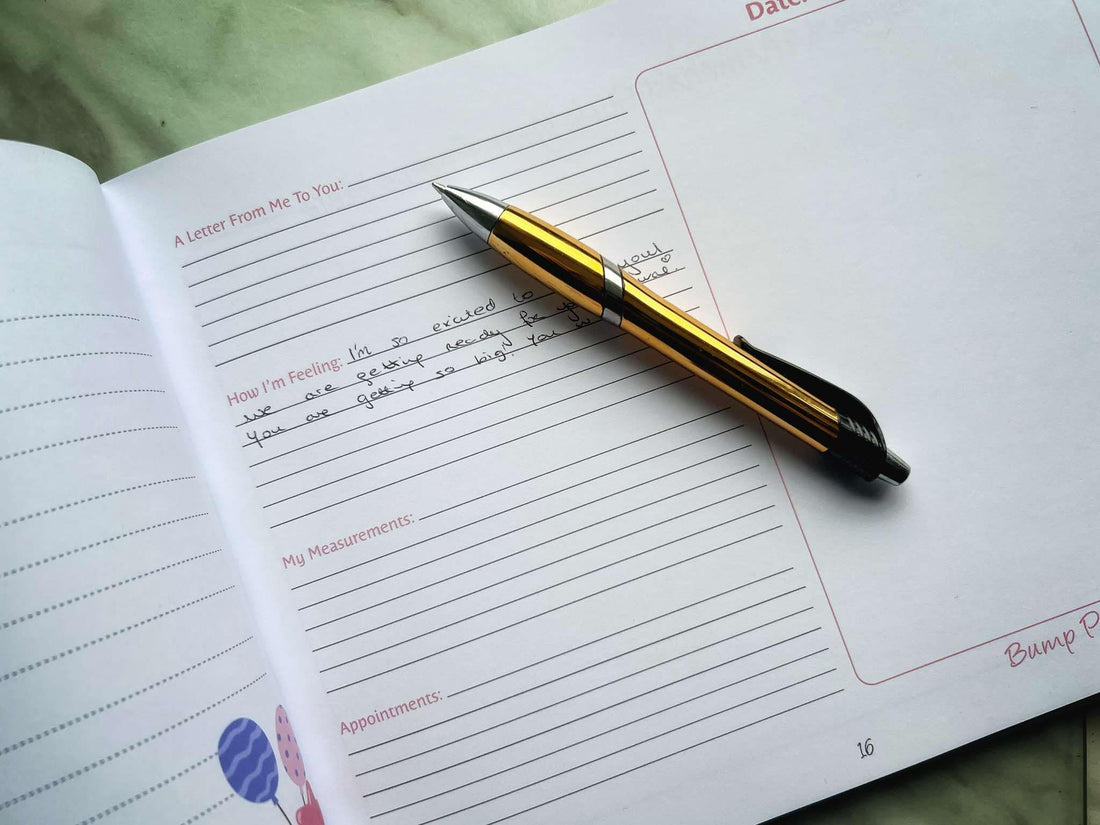 Date:
A Letter From Me To You:
How I'm Feeling: I'm so exicted to you!
we are getting ready for
You are getting so big! You
My Measurements:
Appointments:
Bump
16